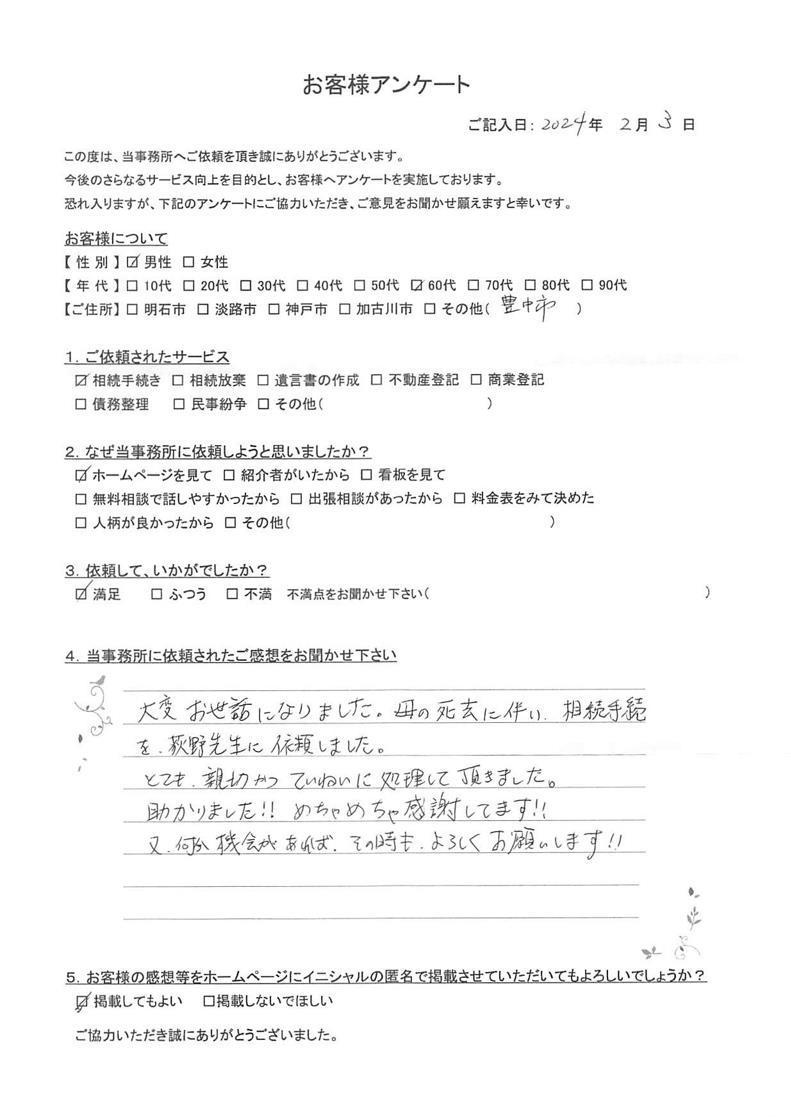 お客様アンケート
ご記入日: 2024年 2月 3日
この度は、当事務所へご依頼を頂き誠にありがとうございます。
今後のさらなるサービス向上を目的とし、お客様へアンケートを実施しております。
恐れ入りますが、下記のアンケートにご協力いただき、ご意見をお聞かせ願えますと幸いです。
お客様について
【 性 別 】 ☑ 男性 □ 女性
【 年 代 】 □ 10代 □ 20代 □ 30代 □ 40代 □ 50代 ☑ 60代 □ 70代 □ 80代 □ 90代
【ご住所】 □ 明石市 □ 淡路市 □ 神戸市 □ 加古川市 □ その他( 豊中市 )
1. ご依頼されたサービス
☑ 相続手続き □ 相続放棄 □ 遺言書の作成 □ 不動産登記 □ 商業登記
□ 債務整理 □ 民事紛争 □ その他( )
2. なぜ当事務所に依頼しようと思いましたか?
☑ ホームページを見て □ 紹介者がいたから □ 看板を見て
□ 無料相談で話しやすかったから □ 出張相談があったから □ 料金表をみて決めた
□ 人柄が良かったから □ その他( )
3. 依頼して、いかがでしたか?
☑ 満足 □ ふつう □ 不満 不満点をお聞かせ下さい( )
4. 当事務所に依頼されたご感想をお聞かせ下さい
大変お世話になりました。母の死去に伴い、相続手続
を、荻野先生に依頼しました。
とても、親切かつていねいに処理して頂きました。
助かりました!! めちゃめちゃ感謝してます!!
又、何か機会があれば、その時も、よろしくお願いします!!
5. お客様の感想等をホームページにイニシャルの匿名で掲載させていただいてもよろしいでしょうか?
☑ 掲載してもよい □掲載しないでほしい
ご協力いただき誠にありがとうございました。